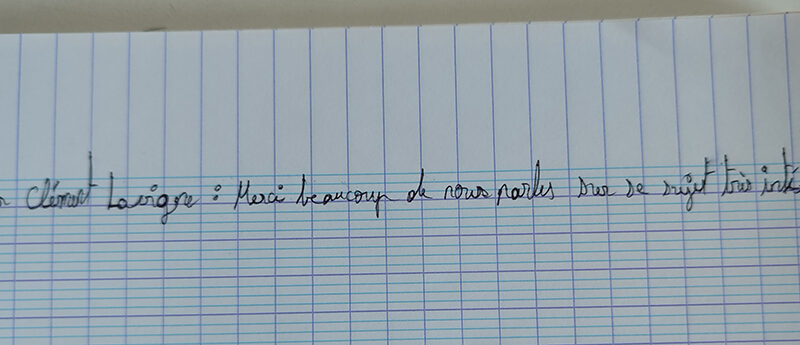 Clément Lavigne : Merci beaucoup de nous parler sur se sujet très inté